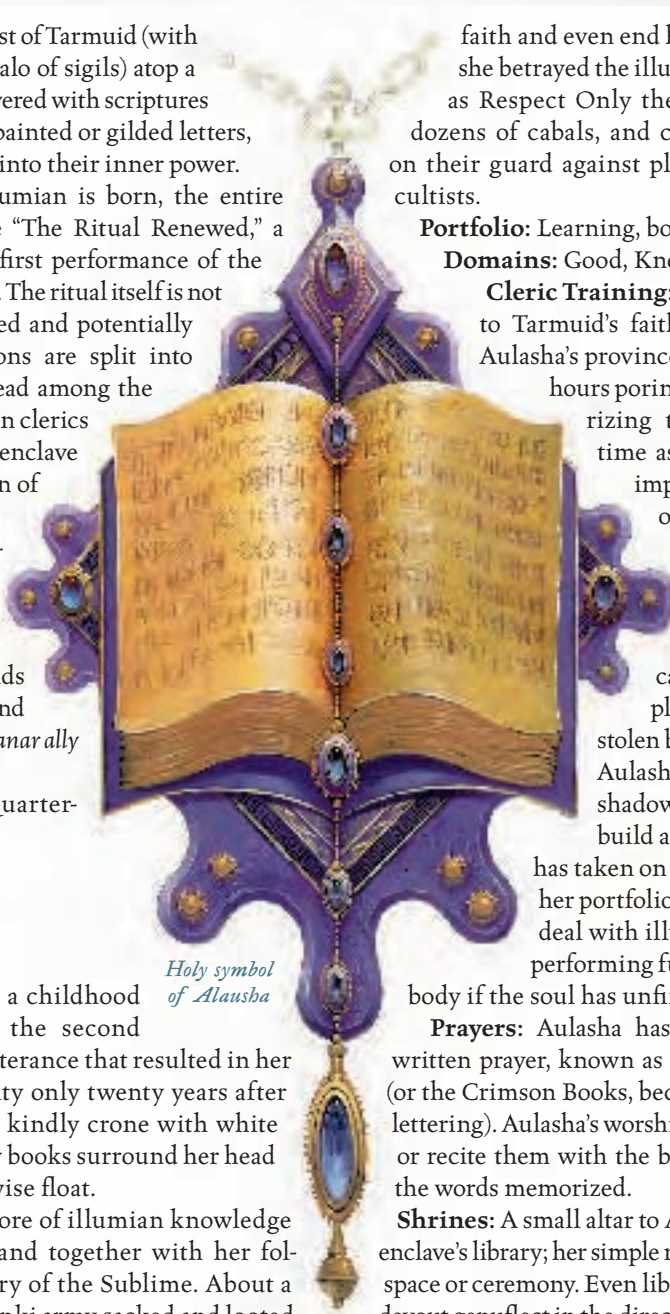 st of Tarmuid (with
alo of sigils) atop a
vered with scriptures
painted or gilded letters,
into their inner power.
umian is born, the entire
e “The Ritual Renewed,” a
first performance of the
. The ritual itself is not
ed and potentially
ons are split into
ead among the
n clerics
enclave
n of
-
ds
nd
anar ally
uarter-
Holy symbol
of Alausha
a childhood
the second
terance that resulted in her
ty only twenty years after
kindly crone with white
y books surround her head
vise float.
ore of illumian knowledge
and together with her fol-
ry of the Sublime. About a
nki army sacked and looted
faith and even end
she betrayed the illu
as Respect Only the
dozens of cabals, and c
on their guard against pl
cultists.
Portfolio: Learning, bo
Domains: Good, Kno
Cleric Training:
to Tarmuid’s faith
Aulasha’s province
hours porin
rizing t
time as
imp
o
ca
pl
stolen b
Aulash
shadow
build a
has taken on
her portfolio
deal with ill
performing fu
body if the soul has unfi
Prayers: Aulasha has
written prayer, known as
(or the Crimson Books, bec
lettering). Aulasha’s worshi
or recite them with the b
the words memorized.
Shrines: A small altar to A
enclave’s library; her simple r
space or ceremony. Even lib
devout genuflect in the dire